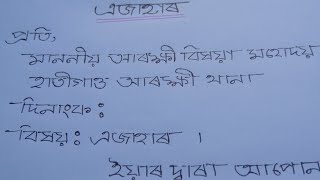 এজাহাৰ
প্ৰতি,
মাননীয় আৰক্ষী বিষয়া মহোদয়
হাতীগাওঁ আৰক্ষী থানা
দিনাংক:
বিষয়: এজাহাৰ ।
ইয়াৰ দ্বাৰা আপোন